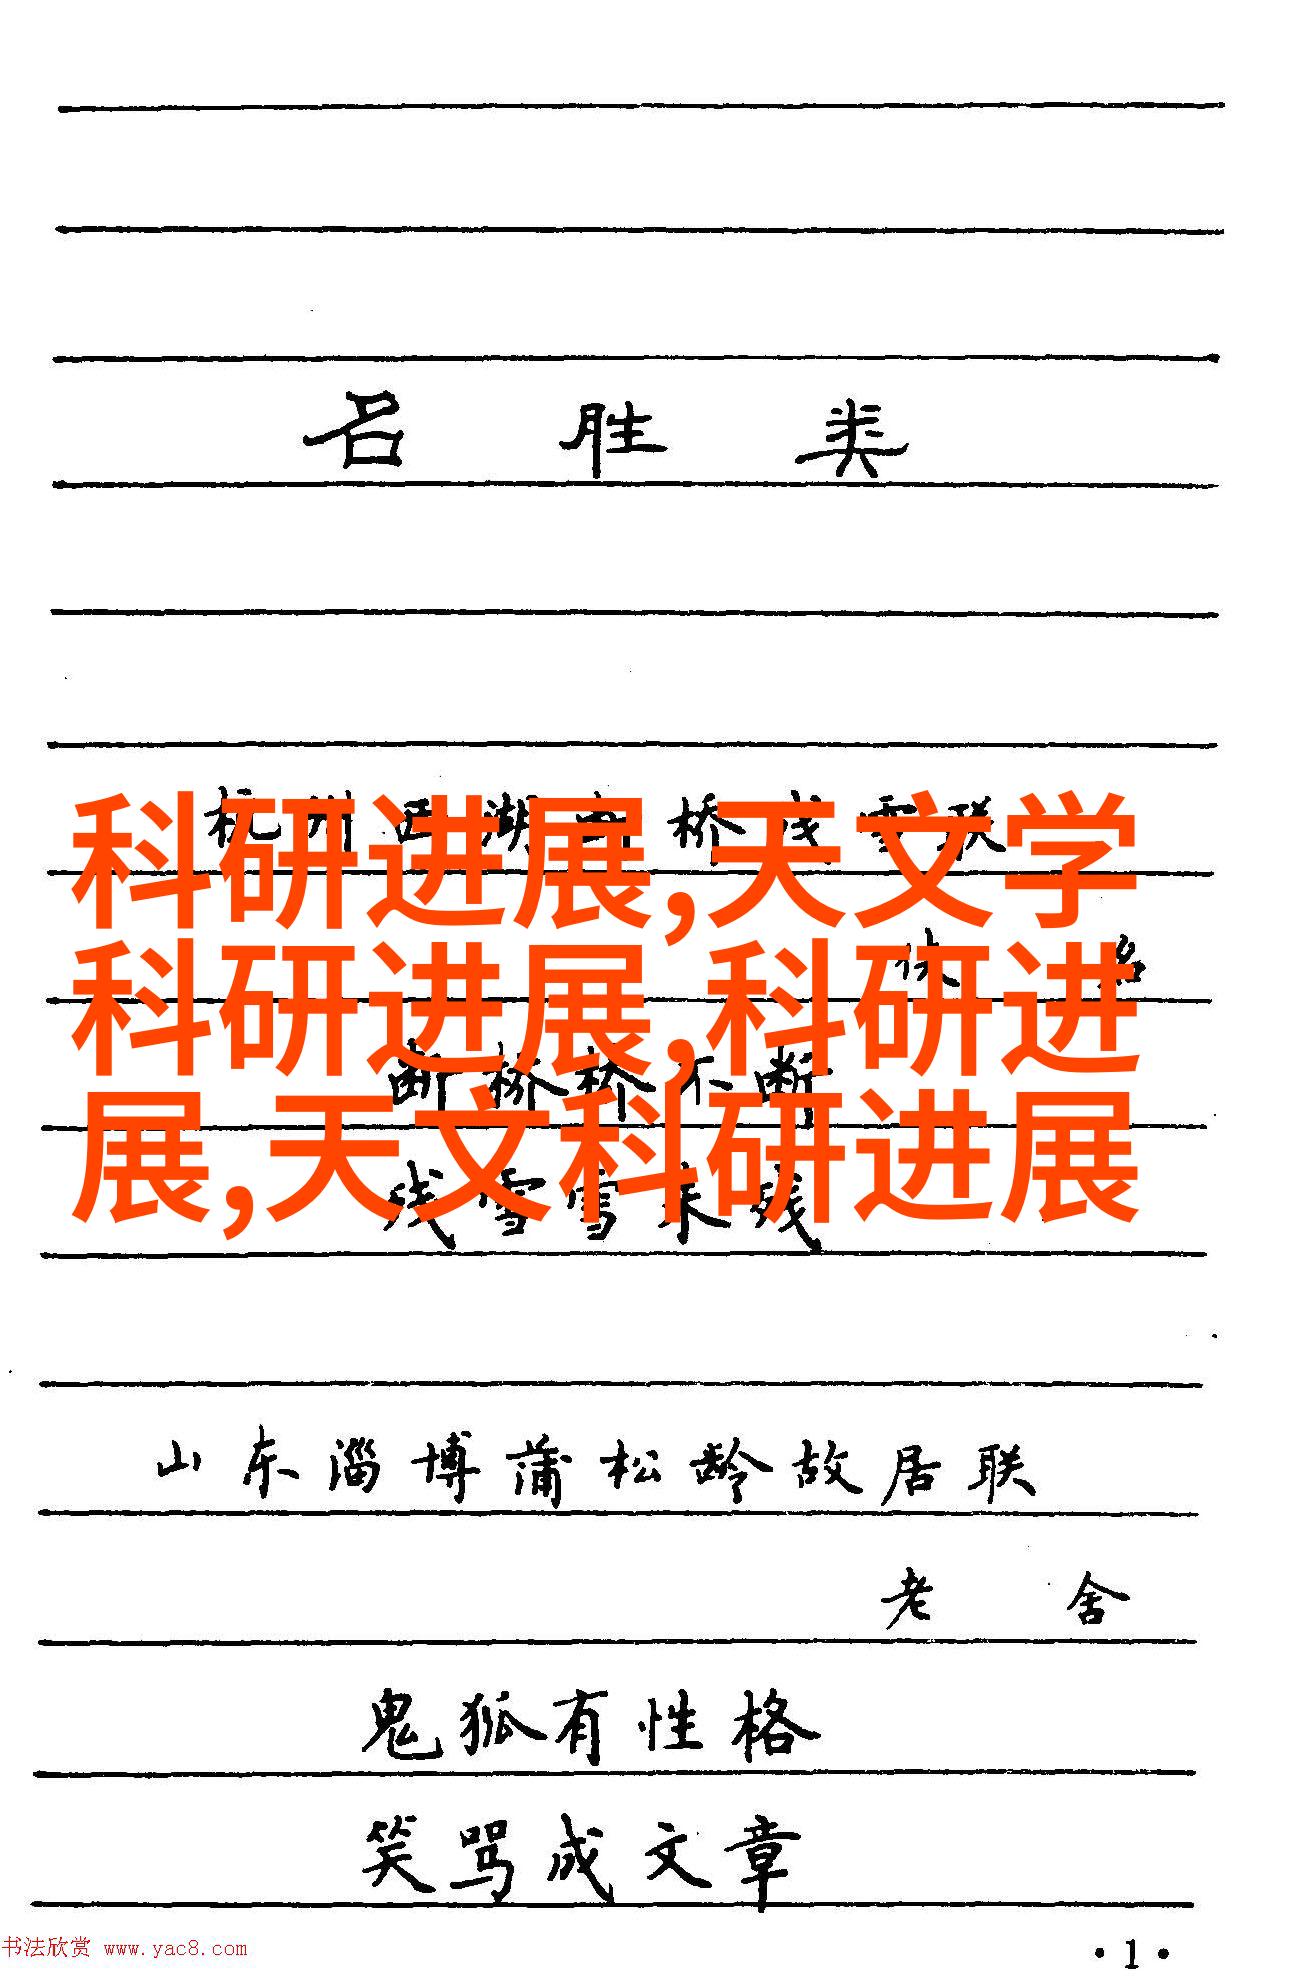 名胜类
杭州西湖断桥残雪联
科研进展,天文学
科研进展,科研进
展,天文科研进展
断桥桥不断
残雪雪未残
山东淄博蒲松龄故居联
老舍
鬼狐有性格
笑骂成文章
书法欣赏 www.yac8.com
·1·